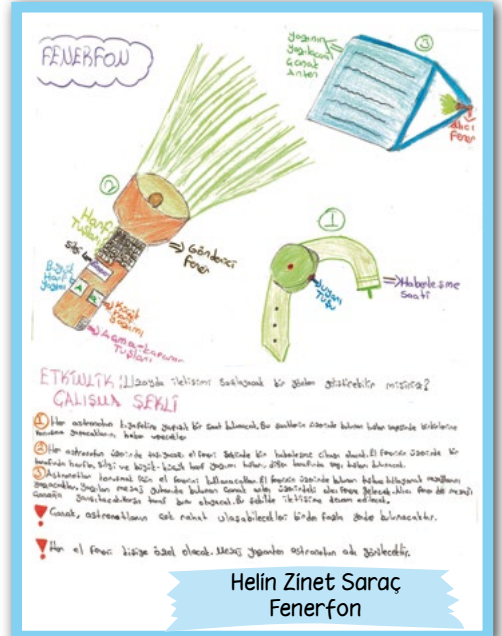 FENERFON
yazının
yazılacağı
Çanak
Anten
③
alıcı
fener
②
Harf
Tuşları
Silgi
Büyük
Harf
yazımı
A
a
Küçük
Harf
yazımı
Açma-kapama
Tuşları
⇒ Gönderici
Fener
①
⇒ Haberleşme
saati
uyarı
Tuşu
ETKİNLİK: Uzayda iletişimi sağlayacak bir yöntem geliştirebilir misiniz?
ÇALIŞMA ŞEKLİ
① Her astronotun kıyafetine yapışık bir saat bulunacak. Bu saatlerin üzerinde bulunan buton sayesinde birbirlerine
konuşma yapacaklarını haber verecekler
② Her astronotun üzerinde taşıyacağı el feneri şeklinde bir haberleşme cihazı olacak. El fenerinin üzerinde bir
tarafında harfler, silgi ve büyük-küçük harf yazımı butonu, diğer tarafında ses butonu bulunacak.
③ Astronotlar konuşmak için el feneri kullanacaklar. El fenerinin üzerinde bulunan
yazacaklar, yazılan mesaj yakında bulunan çanak anten üzerindeki alıcı fenere gelecek. Alıcı fener de mesajı
Çanağa yansıtacak karşı taraf bunu okuyacak. Bu şekilde iletişime devam edilecek.
! Çanak, astronotların çok rahat ulaşabilecekleri birden fazla yerde bulunacaktır.
! Her el feneri kişiye özel olacak. Mesaj yazanın astronotun adı görülecektir.
Helin Zinet Saraç
Fenerfon